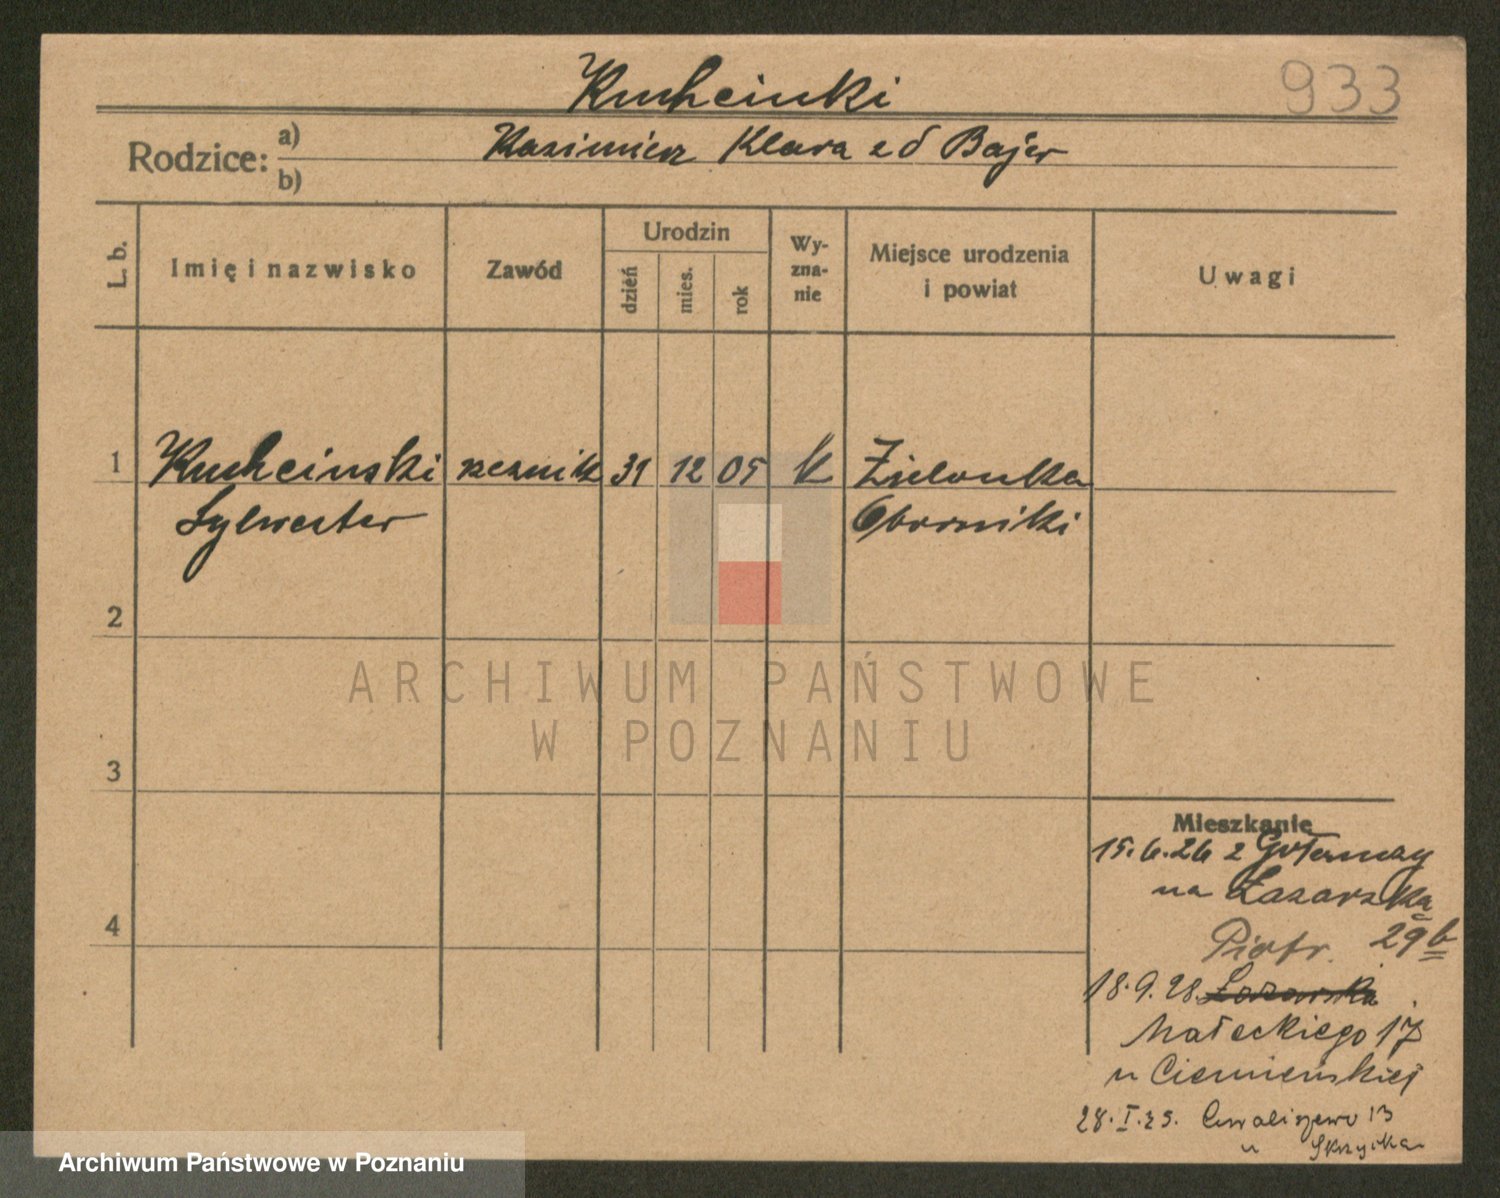 Kuchcinski
933
Rodzice: a) Kazimierz Klara z d Bajer
b)
L. b.
Imię i nazwisko
Zawód
Urodzin
dzień
mies.
rok
Wy-
zna-
nie
Miejsce urodzenia
i powiat
Uwagi
1 Kuchcinski rzeznik 31 12 05 k Zielonka
Sylwester Oborniki
2
3
4
Mieszkanie
15.6.26 z
na Łazarska
Piotr. 29b
18.9.28. Łazarska
Małeckiego 17
u Ciemieńskiej
28.I.29. Chwaliszewo 13
u
ARCHIWUM PAŃSTWOWE
W POZNANIU
Archiwum Państwowe w Poznaniu